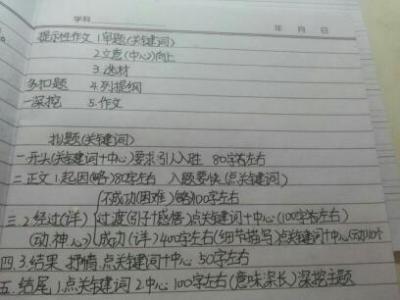 学科
年 月 日
提示性作文 1.审题(关键词)
2.立意(中心)向上
3.选材
多扣题 4.列提纲
一深挖 5.作文
拟题(关键词)
一开头(关键词+中心)要求引人入胜 80字左右
二正文 1.起因(略)80字左右 入题要快(点关键词)
不成功(困难)略100字左右
三 2.经过(详) 过渡(引子+感悟)点关键词+中心(100字左右)
(动.神.心) 成功(详)400字左右(细节描写)点关键词+中心
四.3.结果 抒情.点关键词+中心 50字左右
五.结尾 1.点关键词 2.中心 100字左右(意味深长)深挖主题